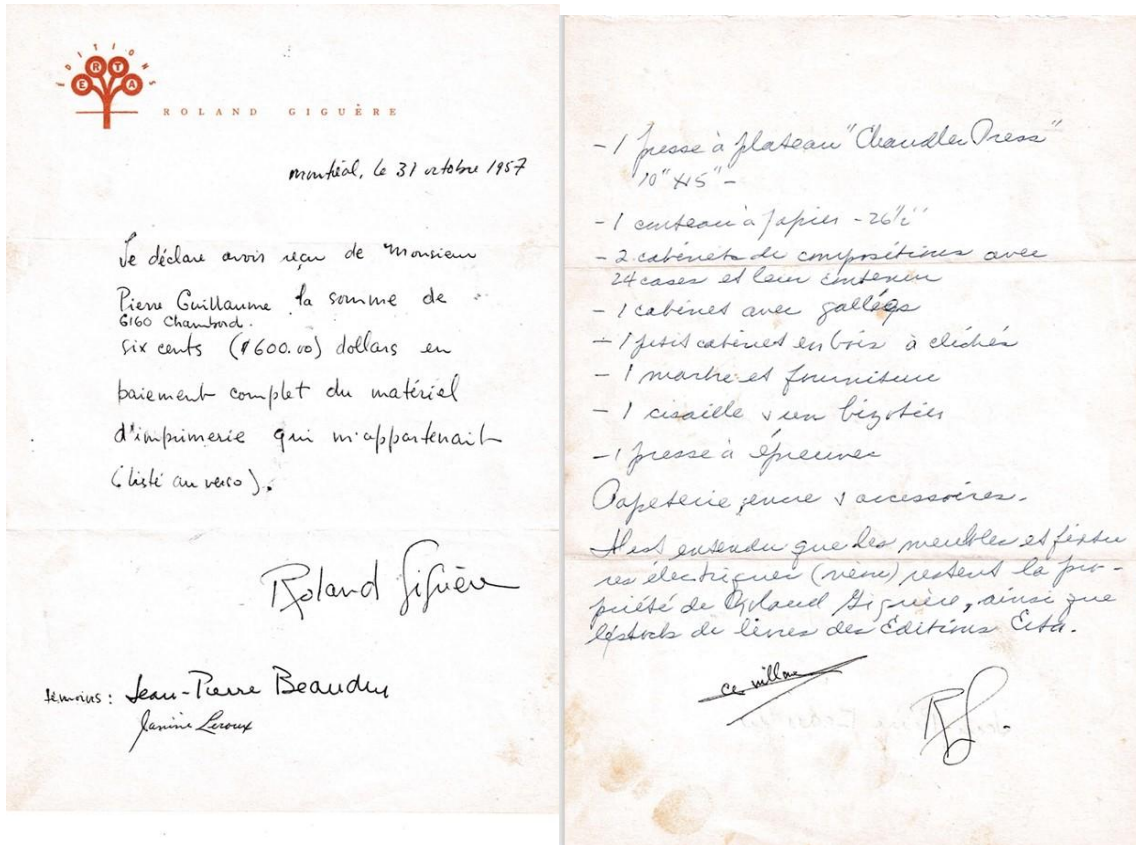 ÉDITIONS
ERTA
ROLAND GIGUÈRE
montréal, le 31 octobre 1957
Je déclare avoir reçu de Monsieur
Pierre Guillaume la somme de
6160 Chambord.
six cents ($600.00) dollars en
paiement complet du matériel
d'imprimerie qui m'appartenait
(listé au verso).
Roland Giguère
témoins: Jean-Pierre Beaudin
Janine Leroux
- 1 presse à plateau "Chandler Press"
10" x 15" -
- 1 couteau à papier - 26½"
- 2 cabinets de compositions avec
24 cases et leur contenu
- 1 cabinet avec gallées
- 1 petit cabinet en bois à clichés
- 1 marbre et fourniture
- 1 cisaille & un bizotier
- 1 presse à épreuves
Papeterie, encre & accessoires.
Il est entendu que les meubles et fixtu
res électriques (néons) restent la pro-
priété de Roland Giguère, ainsi que
le stock de livres des Éditions Erta.
RG.